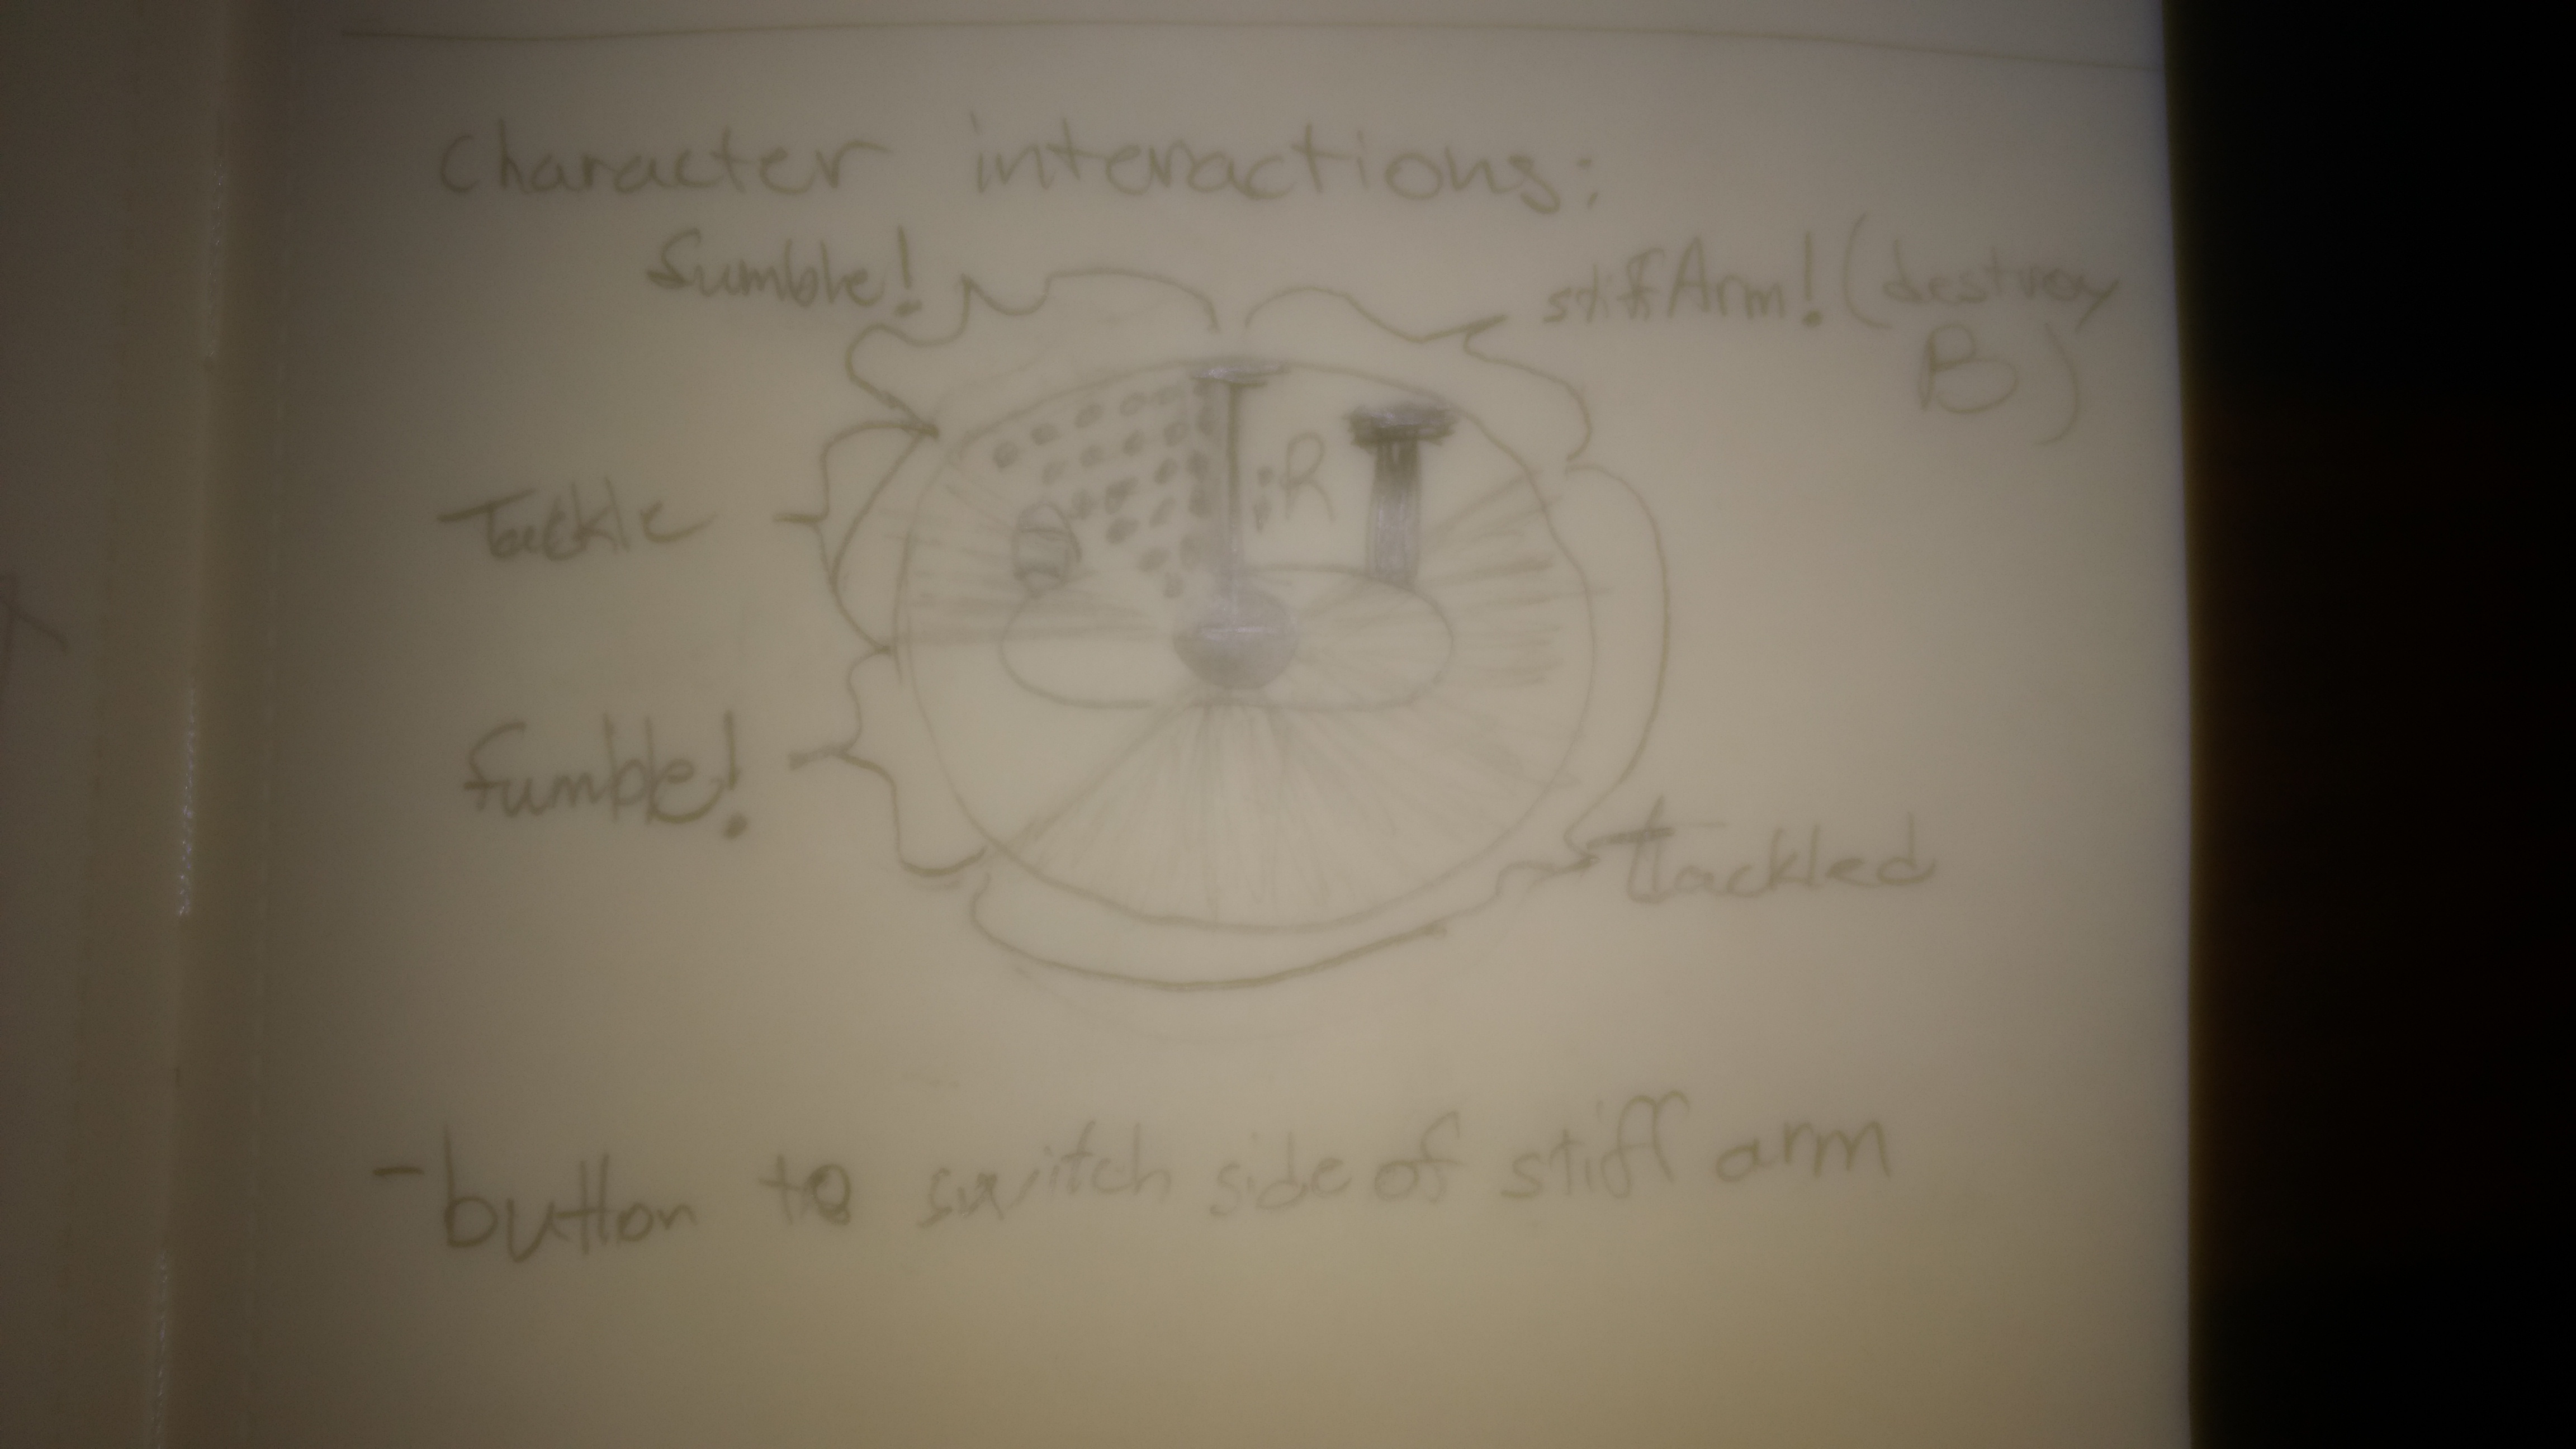 Character interactions:
fumble!
stiffArm! (destroy
B)
R
Tackle
fumble!
tackled
- button to switch side of stiff arm